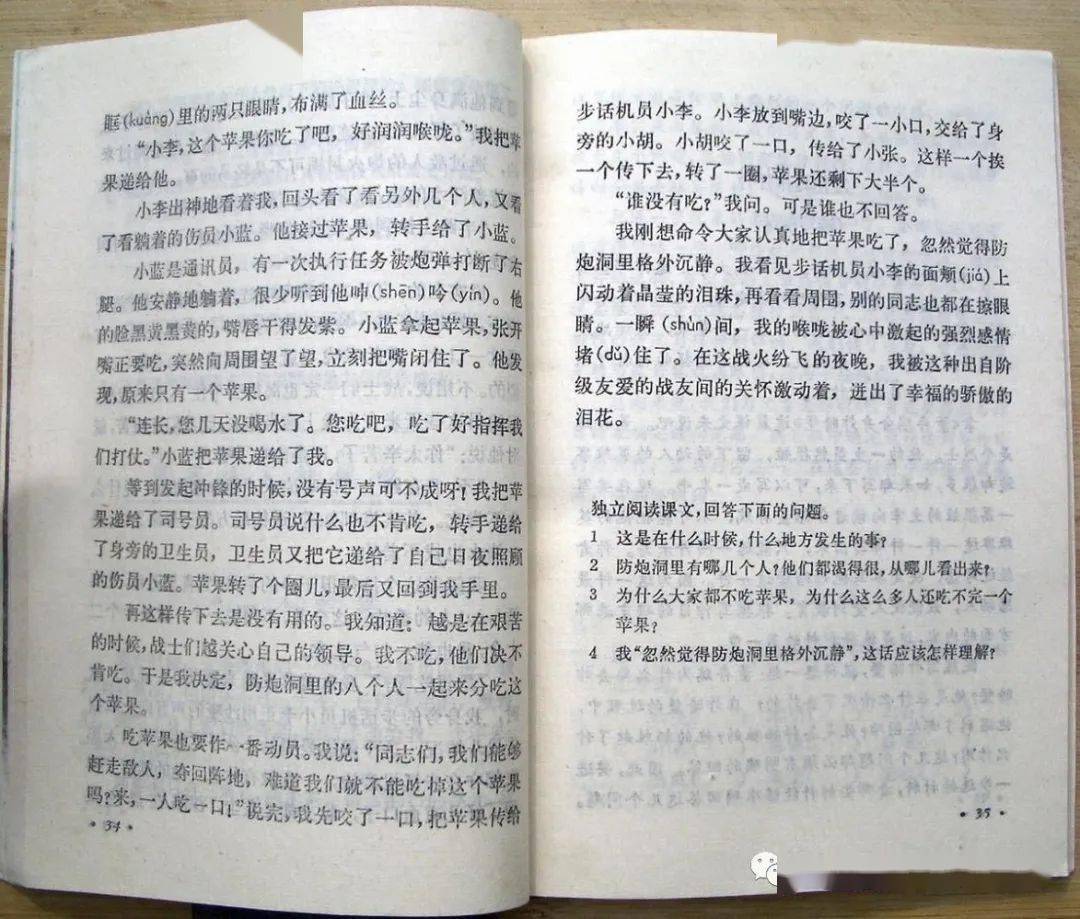 眶(kuàng)里的两只眼睛，布满了血丝。
“小李，这个苹果你吃了吧，好润润喉咙。”我把苹
果递给他。
小李出神地看着我，回头看了看另外几个人，又看
了看躺着的伤员小蓝。他接过苹果，转手给了小蓝。
小蓝是通讯员，有一次执行任务被炮弹打断了右
腿。他安静地躺着，很少听到他呻(shēn)吟(yín)。他
的脸黑黄黑黄的，嘴唇干得发紫。小蓝拿起苹果，张开
嘴正要吃，突然向周围望了望，立刻把嘴闭住了。他发
现，原来只有一个苹果。
“连长，您几天没喝水了。您吃吧，吃了好指挥我
们打仗。”小蓝把苹果递给了我。
等到发起冲锋的时候，没有号声可不成呀！我把苹
果递给了司号员。司号员说什么也不肯吃，转手递给
了身旁的卫生员，卫生员又把它递给了自己日夜照顾
的伤员小蓝。苹果转了个圈儿，最后又回到我手里。
再这样传下去是没有用的。我知道：越是在艰苦
的时候，战士们越关心自己的领导。我不吃，他们决不
肯吃。于是我决定，防炮洞里的八个人一起来分吃这
个苹果。
吃苹果也要作一番动员。我说：“同志们，我们能够
赶走敌人，夺回阵地，难道我们就不能吃掉这个苹果
吗？来，一人吃一口！”说完，我先咬了一口，把苹果传给
·34·
步话机员小李。小李放到嘴边，咬了一小口，交给了身
旁的小胡。小胡咬了一口，传给了小张。这样一个挨
一个传下去，转了一圈，苹果还剩下大半个。
“谁没有吃？”我问。可是谁也不回答。
我刚想命令大家认真地把苹果吃了，忽然觉得防
炮洞里格外沉静。我看见步话机员小李的面颊(jiá)上
闪动着晶莹的泪珠，再看看周围，别的同志也都在擦眼
睛。一瞬(shùn)间，我的喉咙被心中激起的强烈感情
堵(dǔ)住了。在这战火纷飞的夜晚，我被这种出自阶
级友爱的战友间的关怀激动着，迸出了幸福的骄傲的
泪花。
独立阅读课文，回答下面的问题。
1 这是在什么时候，什么地方发生的事？
2 防炮洞里有哪几个人？他们都渴得很，从哪儿看出来？
3 为什么大家都不吃苹果，为什么这么多人还吃不完一个
苹果？
4 我“忽然觉得防炮洞里格外沉静”，这话应该怎样理解？
·35·